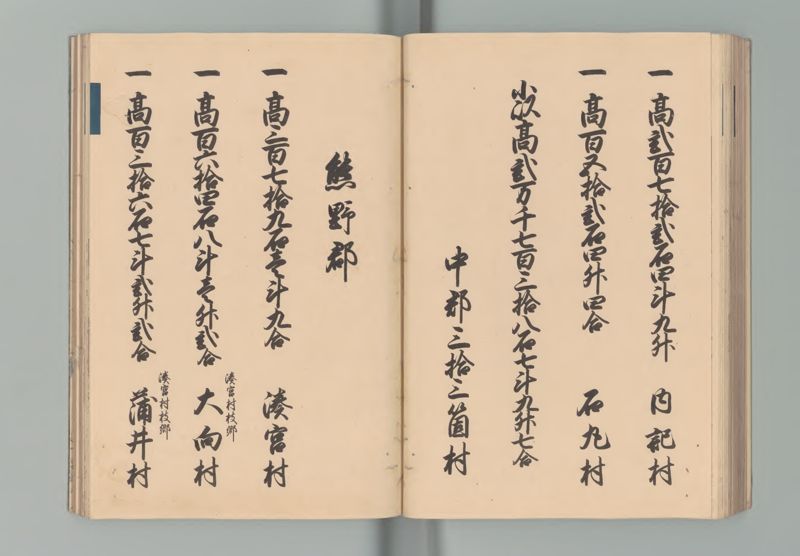 一高弐百七拾弐石四斗九升 内記村
一高百五拾弐石四升四合 石丸村
小以高弐万千七百三拾八石七斗九升七合
中郡三拾三箇村
熊野郡
一高三百七拾九石壱斗九合 湊宮村
湊宮村枝郷
一高百六拾四石八斗壱升弐合 大向村
湊宮村枝郷
一高百三拾六石七斗弐升弐合 蒲井村